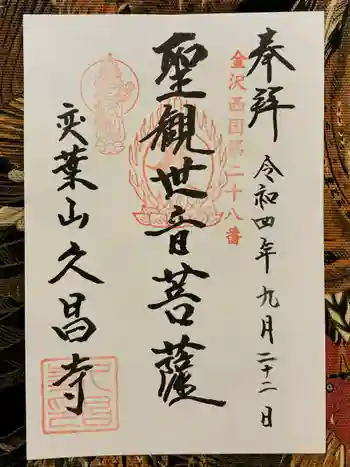 奉拝
令和四年九月二十二日
金沢西国第二十八番
聖観世音菩薩
葉山久昌寺